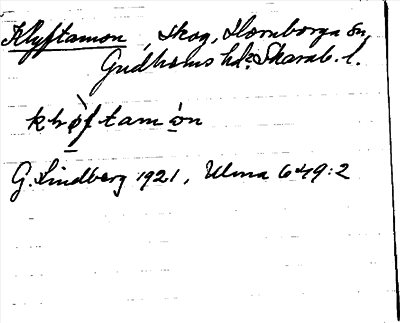 Klyftamon, Skog, Hornborga sn,
Gudhems hd. Skarab. l.
klyftamon
G. Lindberg 1921, Ulma 649:2